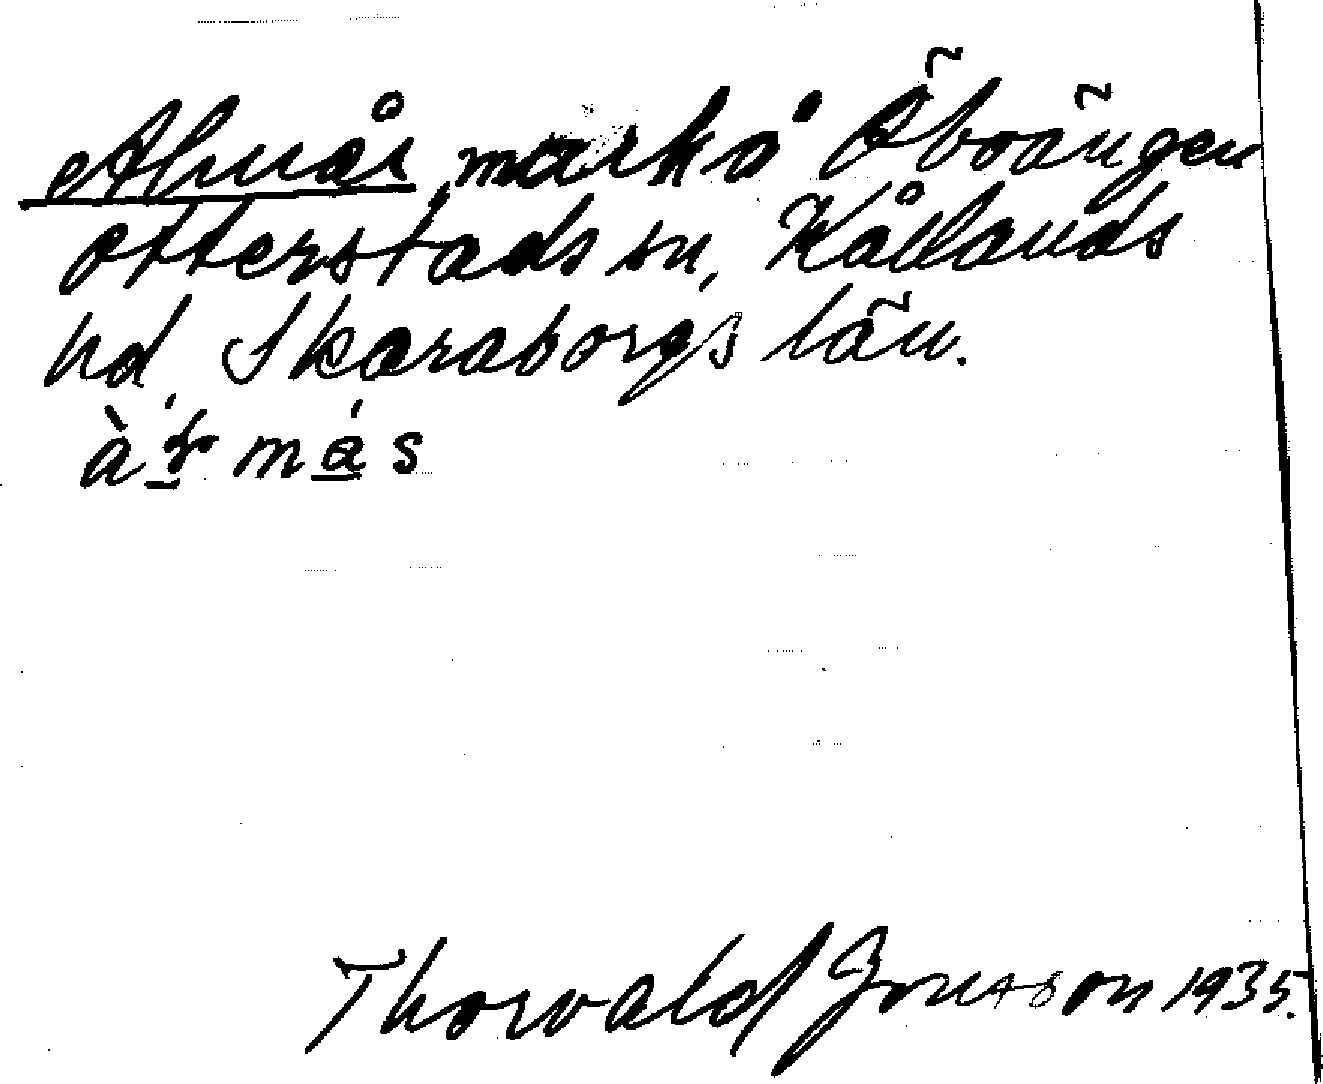 Almås mark å Öboängen
Otterstads sn, Kållands
hd, Skaraborgs län.
Thorvald Jonsson 1935.